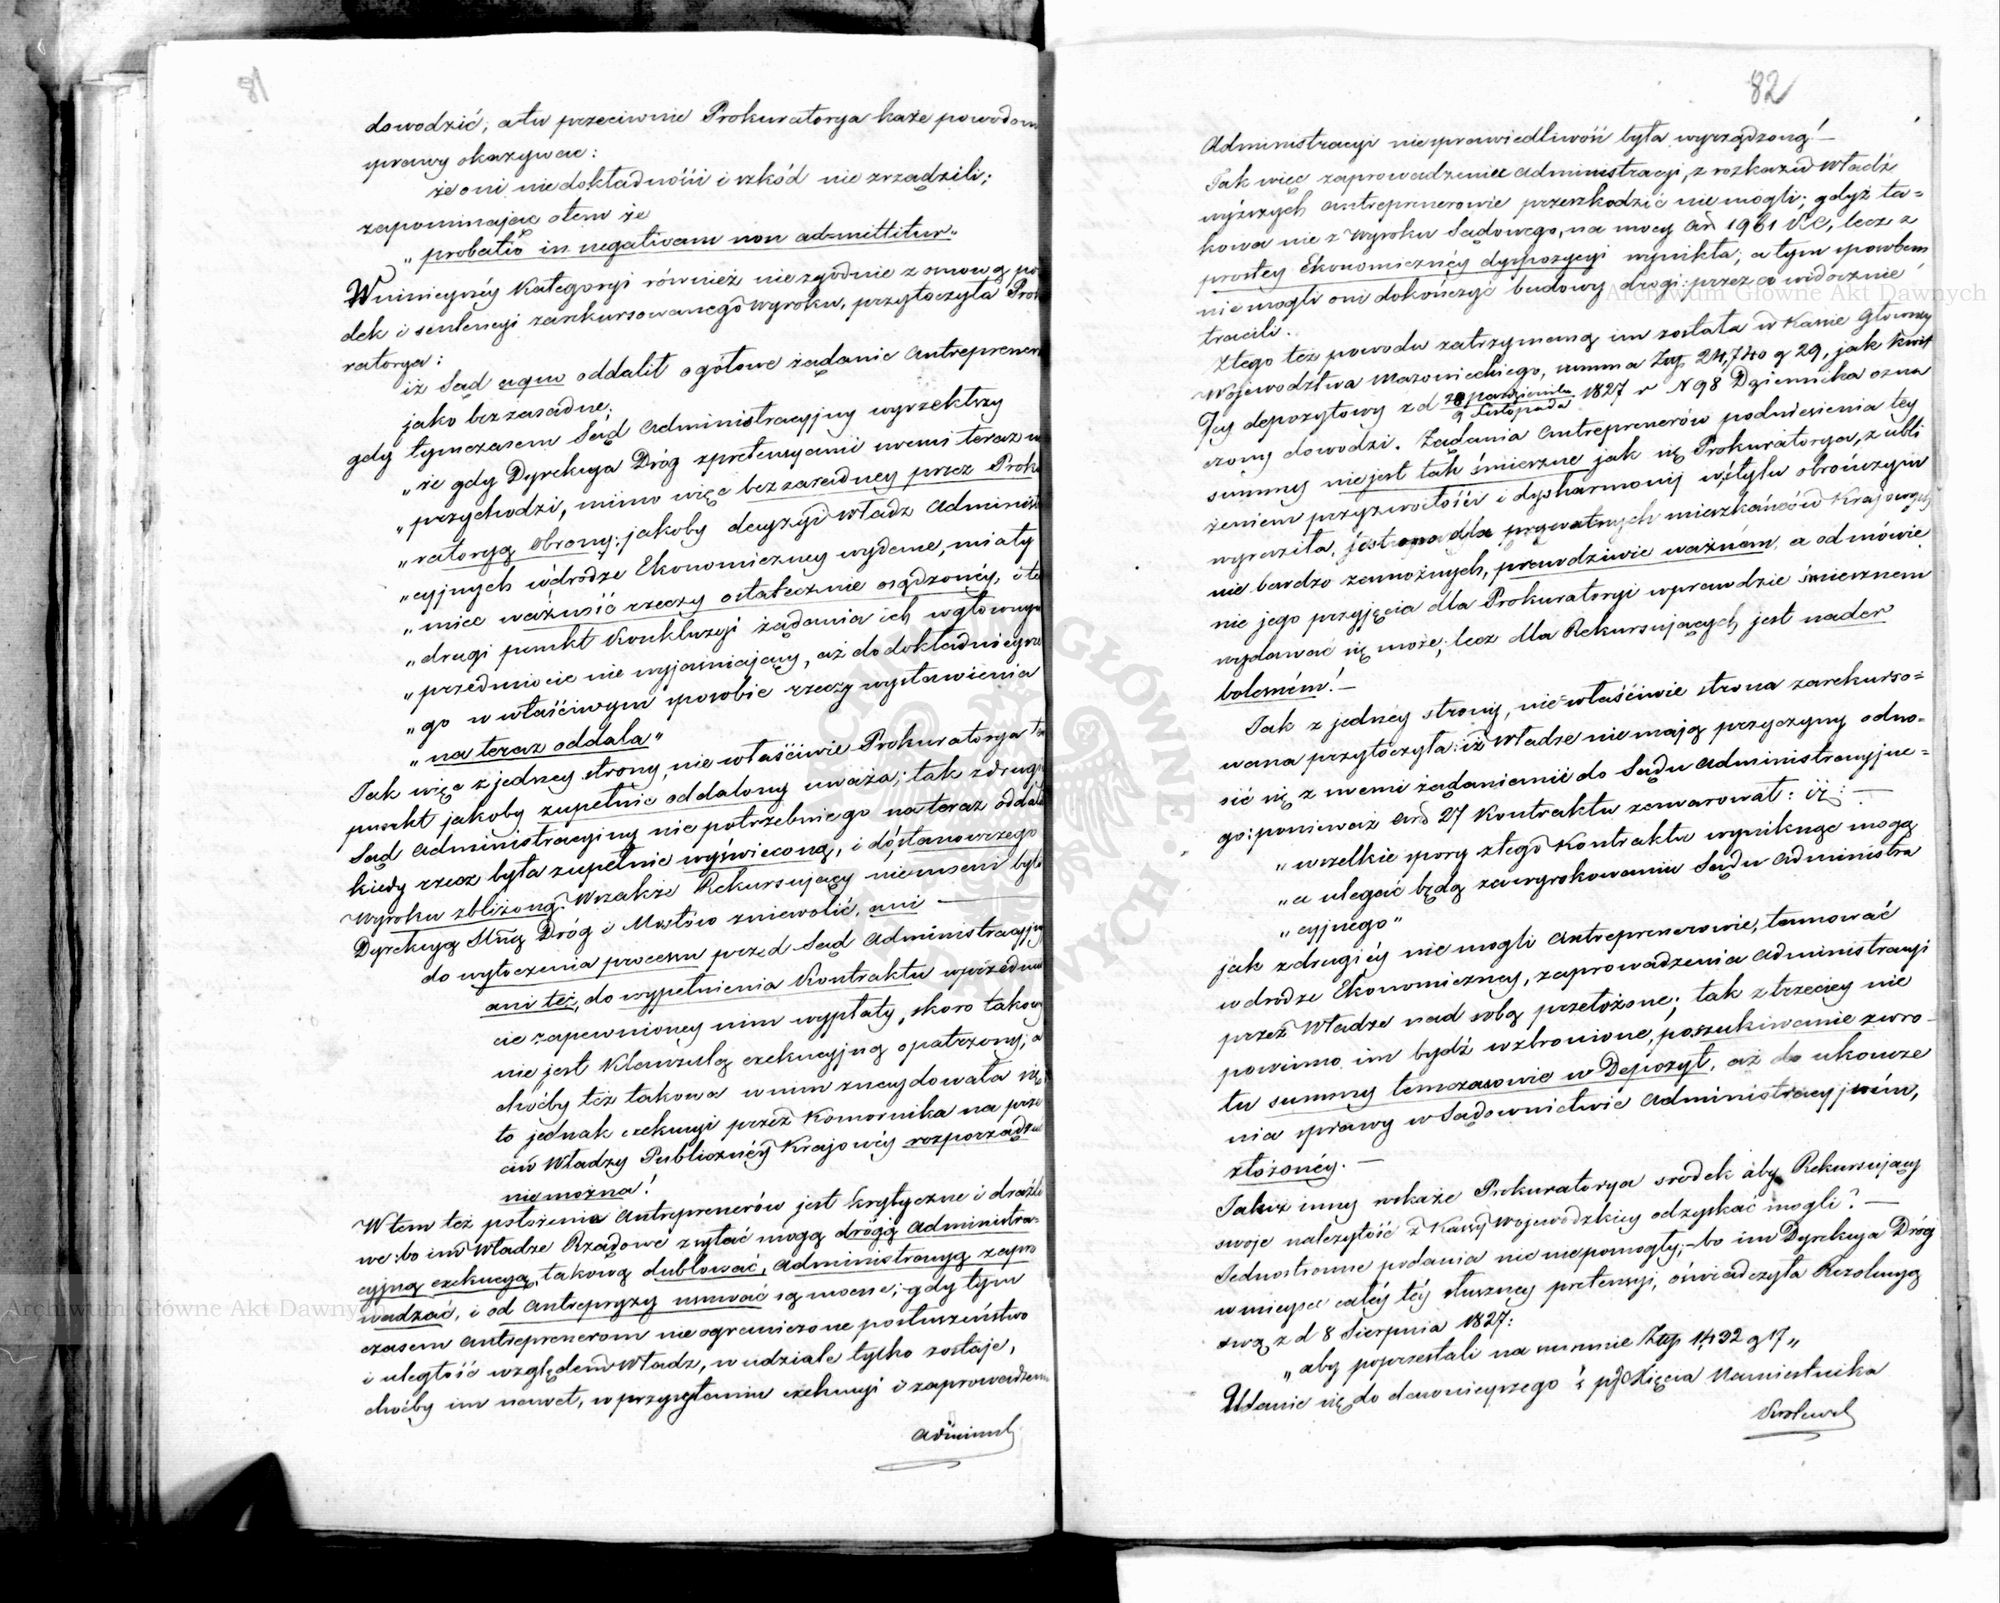 81
dowodzić; a tu przeciwnie Prokuratorya każe powodom
sprawy okazywać:
że oni niedokładności i szkód nie zrządzili;
zapominając o tem że
„probatio in negativam non admittitur„
W niniejszéj Kategoryi również niezgodnie z osnową po
dek i sentencyi zarekursowanego Wyroku, przytoczyła Prok
ratorya:
iż Sąd a quo oddalił ogółowe żądanie Antreprener
jako bezzasadne;
gdy tymczasem Sąd Administracyjny wyrzekłszy
„że gdy Dyrekcya Dróg z pretensyami swemi teraz
„przychodzi, mimo więc bezzasadney przez Proku
„ratoryą obrony: jakoby decyzyi Władz Administra
„cyjnych w drodze Ekonomiczney wydane, miały
„mieć ważność rzeczy ostatecznie osądzonéj, i te
„drugi punkt Konkluzyi żądania ich w głownym
„przedmiocie nie wyjaśniający, aż do dokładnieysze
„go w właściwym sposobie rzeczy wystawienia
„na teraz oddala„
Tak więc z jedney strony, nie właściwie Prokuratorya
punkt jakoby zupełnie oddalony uważa; tak z drugi
Sąd Administracyiny nie potrzebnie go na teraz oddal
kiedy rzecz była zupełnie wyświeconą, i do stanowczego
Wyroku zbliżoną. Wszakże Rekursujący nie mseni byli
Dyrekcyą Jlną Dróg i Mostów zniewolić, ani —
do wytoczenia processu przed Sąd Administracyjny
ani też, do wypełnienia Kontraktu w przedmio
cie zapewnioney nim wypłaty, skoro takowy
nie jest Klauzulą exekucyjną opatrzony, a
choćby też takowa w nim znaydowała się
to jednak exekucyi przez Komornika na prze
ciw Władzy Publicznéj Krajowéj rozporządzać
nie można!
W tem też położeniu Antreprenerów jest krytyczne i drażli
we: bo im Władze Rządowe zsyłać mogą drogą Administra-
cyjną exekucyą, takową dublować, Administracyą zapro
wadzać, i od Antrepryzy usuwać są mocne; gdy tym
czasem Antreprenerom nieograniczone posłuszeństwo
i uległość względem Władz, w udziale tylko zostaje,
choćby im nawet, w przysyłaniu exekucyi i zaprowadzeniu
Administ
82
Administracyi niesprawiedliwość była wyrządzoną! —
Tak więc zaprowadzeniu Administracyi, z rozkazu Władz
wyższych Antreprenerowie przeszkodzić nie mogli; gdyż ta=
kowa nie z Wyroku Sądowego, na mocy Art 1961 KC, lecz z
prostey Ekonomicznéj dyspozycyi wynikła, a tym sposobem
nie mogli oni dokończyć budowy drogi: przez co widocznie
tracili.
Z tego też powodu zatrzymaną im została w Kassie Głowney
Wojewodztwa Mazowieckiego, summa Złp 24,740 g 29, jak kwit
Jey depozytowy z d 28 Pazdziernika
9 Listopada 1827 r N 98 Dziennika ozna
czony dowodzi. Żądania Antreprenerów podniesienia tey
summy nie jest tak śmieszne jak się Prokuratorya, z ubli
żeniem przyzwoitości i dysharmonij w stylu obrończym
wyraziła, jest ono dla prywatnych mieszkańców Krajowych
nie bardzo zamożnych, prawdziwie ważném, a odmówie
nie jego przyjęcia dla Prokuratoryi wprawdzie śmiesznem
wydawać się może; lecz dla Rekursujących jest nader
bolesném! —
Jak z jedney strony, nie właściwie strona zarekurso=
wana przytoczyła: iż Władze nie mają przyczyny odno-
sić się z swemi żądaniami do Sądu Administracyjne=
go: ponieważ Art 27 Kontraktu zawarował: iż: —
„wszelkie spory z tego Kontraktu wyniknąć mogą
„a ulegać będą zawyrokowaniu Sądu Administra
„cyjnego”
jak z drugiéj nie mogli Antreprenerowie, tamować
w drodze Ekonomiczney, zaprowadzenia Administracyi
przez Władze nad sobą przełożone; tak z trzeciey nie
powinno im bydź wzbronione, poszukiwanie zwro-
tu summy temczasowie w Depozyt, aż do ukończe
nia sprawy w Sądownictwie Administracyjném,
złożonéj. —
Jakiż inny wskaże Prokuratorya srodek aby Rekursujący
swoje należytość z Kassy Wojewodzkiey odzyskać mogli? —
Jednostronne podania nic nie pomogły; – bo im Dyrekcya Dróg
w miejsce całéj téj słuszney pretensyi, oświadczyła Rezolucyą
swą z d 8 Sierpnia 1827:
„aby poprzestali na summie Złp 1432 g 17„
Udanie się do dawnieyszego ś p JO Xięcia Namiestnika